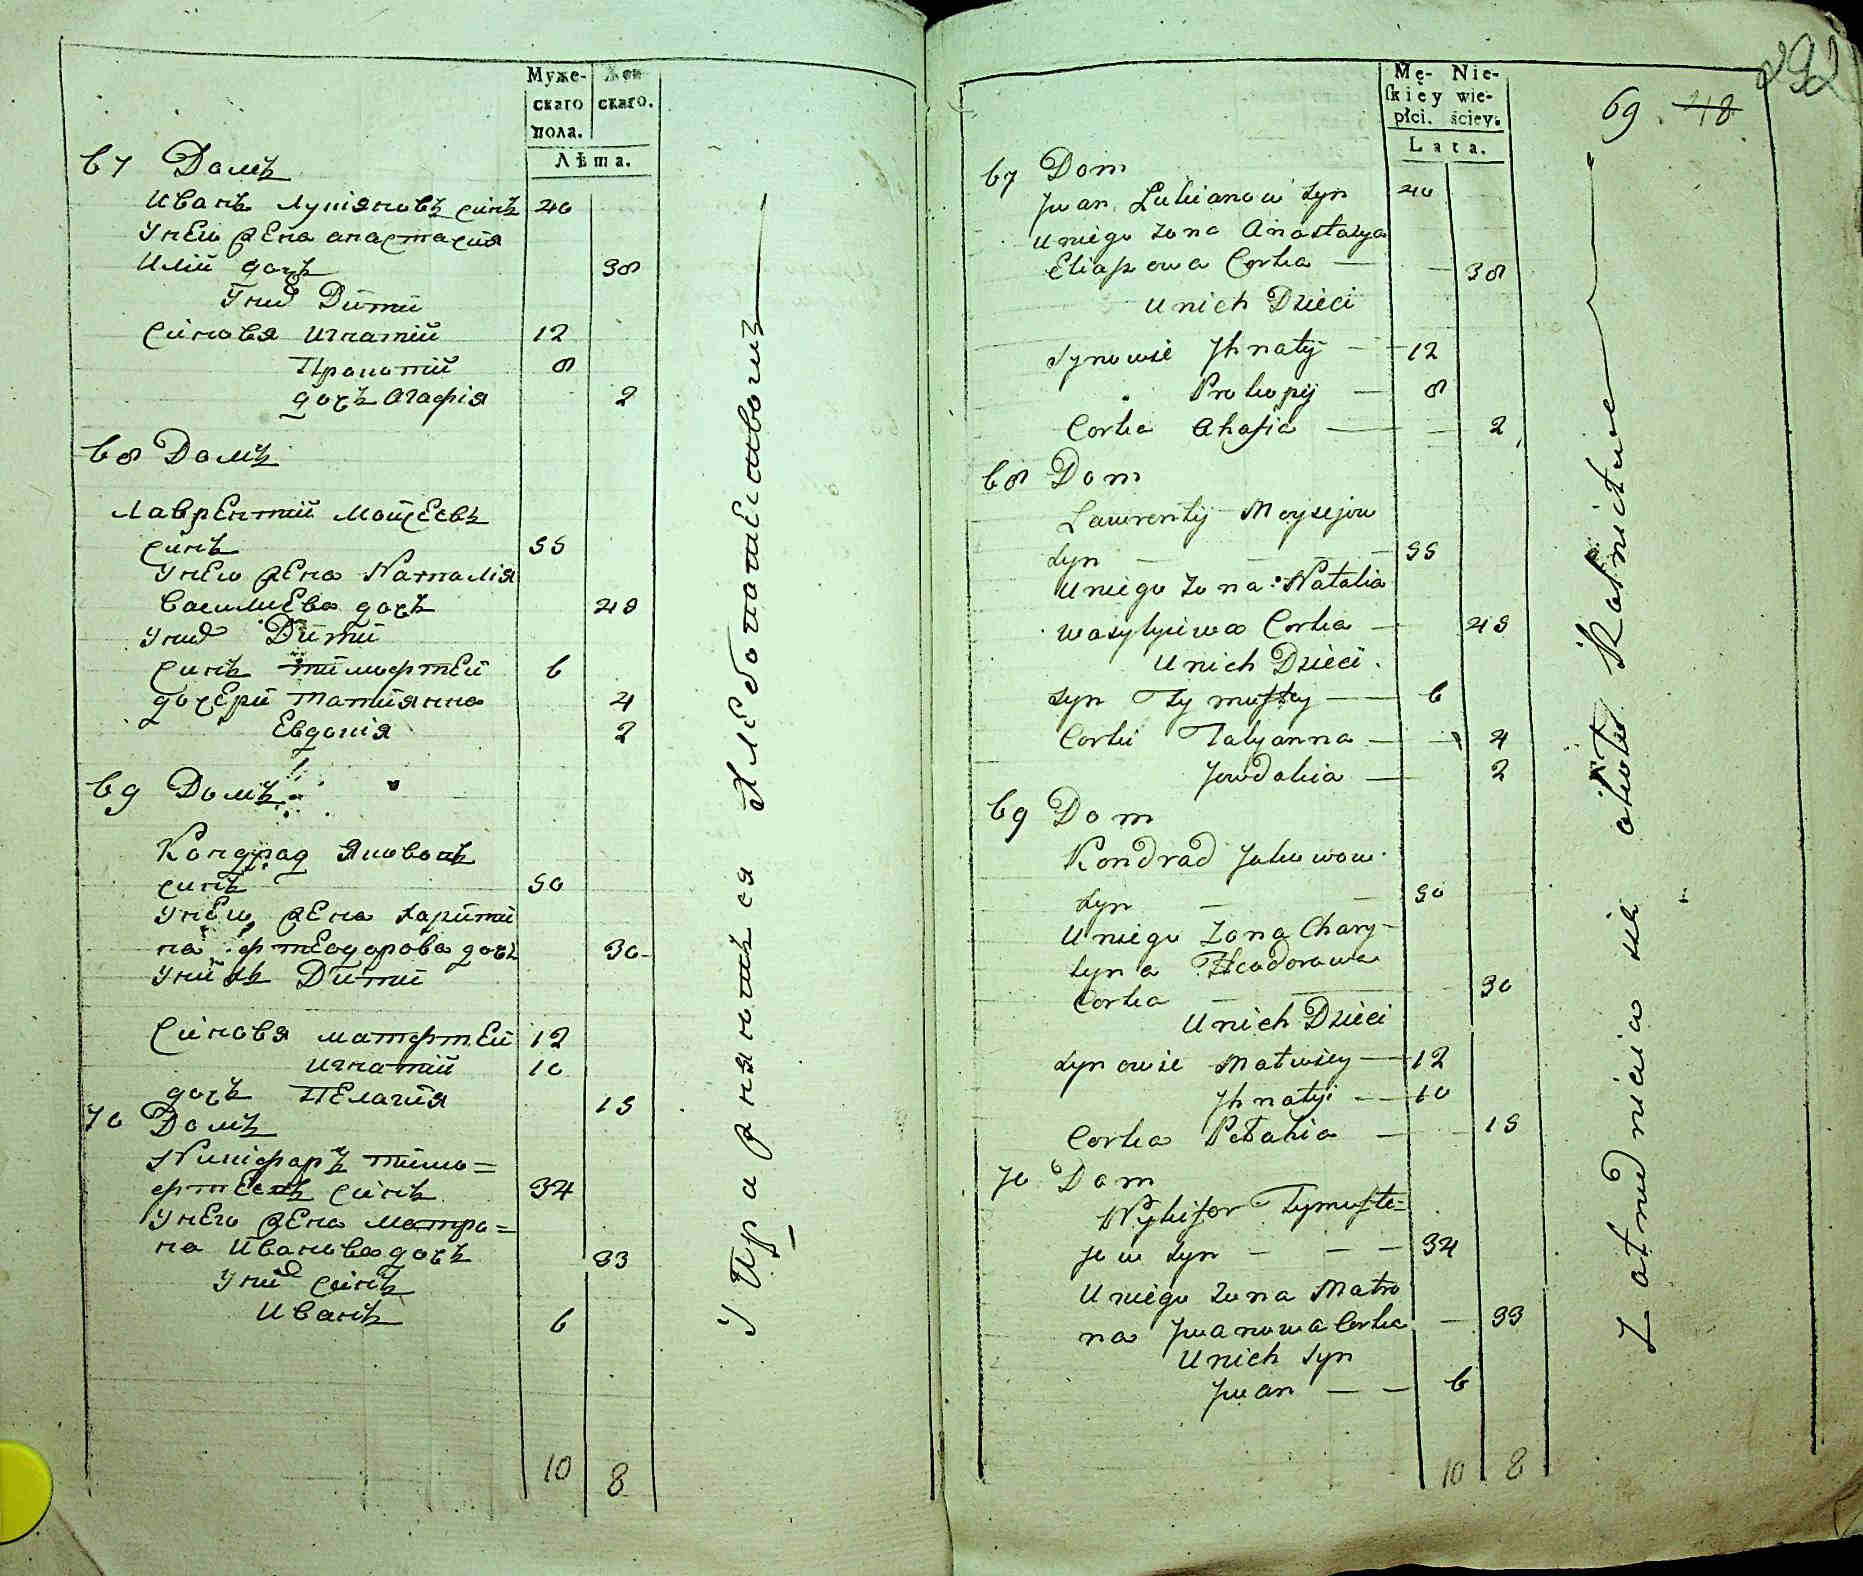 Муже-
скаго
пола.
Жен
скаго.
Лѣта.
67 Домъ
Иванъ Лукіяновъ синъ 40
Унего жена анастасия
Илїи дочъ 38
Уних Дїтти
Синовя Игнатїй 12
Прокопїй 8
дочъ Агафія 2
68 Домъ
Лаврентїй Мойсеевъ
синъ 55
Унего жена Наталія
Василиева дочъ 45
Уних Дїтти
синъ тимофтей 6
дочери Татиянна 4
Евдокія 2
69 Домъ
Кондрад Якововъ
синъ 50
Унего жена Харити
на фтеодорова дочъ 30
Унихъ Дїтти
Синовя Матфтей 12
Игнатїй 10
дочъ Пелагия 15
70 Домъ
Никіфоръ тимо=
фтеевъ синъ 34
Унего жена Матро=
на Иванова дочъ 33
Уних синъ
Иванъ 6
10 8
Упражняются Хлебопашествомъ
292
69. 48
Mę-
ſkiey
płci.
Nie-
wie-
ściey.
Lata.
67 Dom
Jwan Lukianow syn 40
Uniego zona Anastazya
Eliaszowa Corka — — 38
Unich Dzieci
Synowie Jhnaty — 12
Prokopiy — 8
Corka Ahafia — — 2
68 Dom
Lawrenty Moysejow
syn — — — 55
Uniego zona Natalia
Wasylyiewa Corka — 45
Unich Dzieci
syn Tymuftey — 6
Corki Tatyanna — — 4
Jewdokia — 2
69 Dom
Kondrad Jakowow
syn — — 50
Uniego Zona Chary-
tyna Fteodorowa
Corka — — — 30
Unich Dzieci
synowie Matwiey — 12
Jhnatyi — 10
Corka Pelahia — — 15
70 Dom
Nykifor Tymufte=
jow syn — — — 34
Uniego Zona Matro
na Jwanowa Corka — 33
Unich syn
Jwan — — 6
10 8
Zatrudniaia sie około Rolnictwa